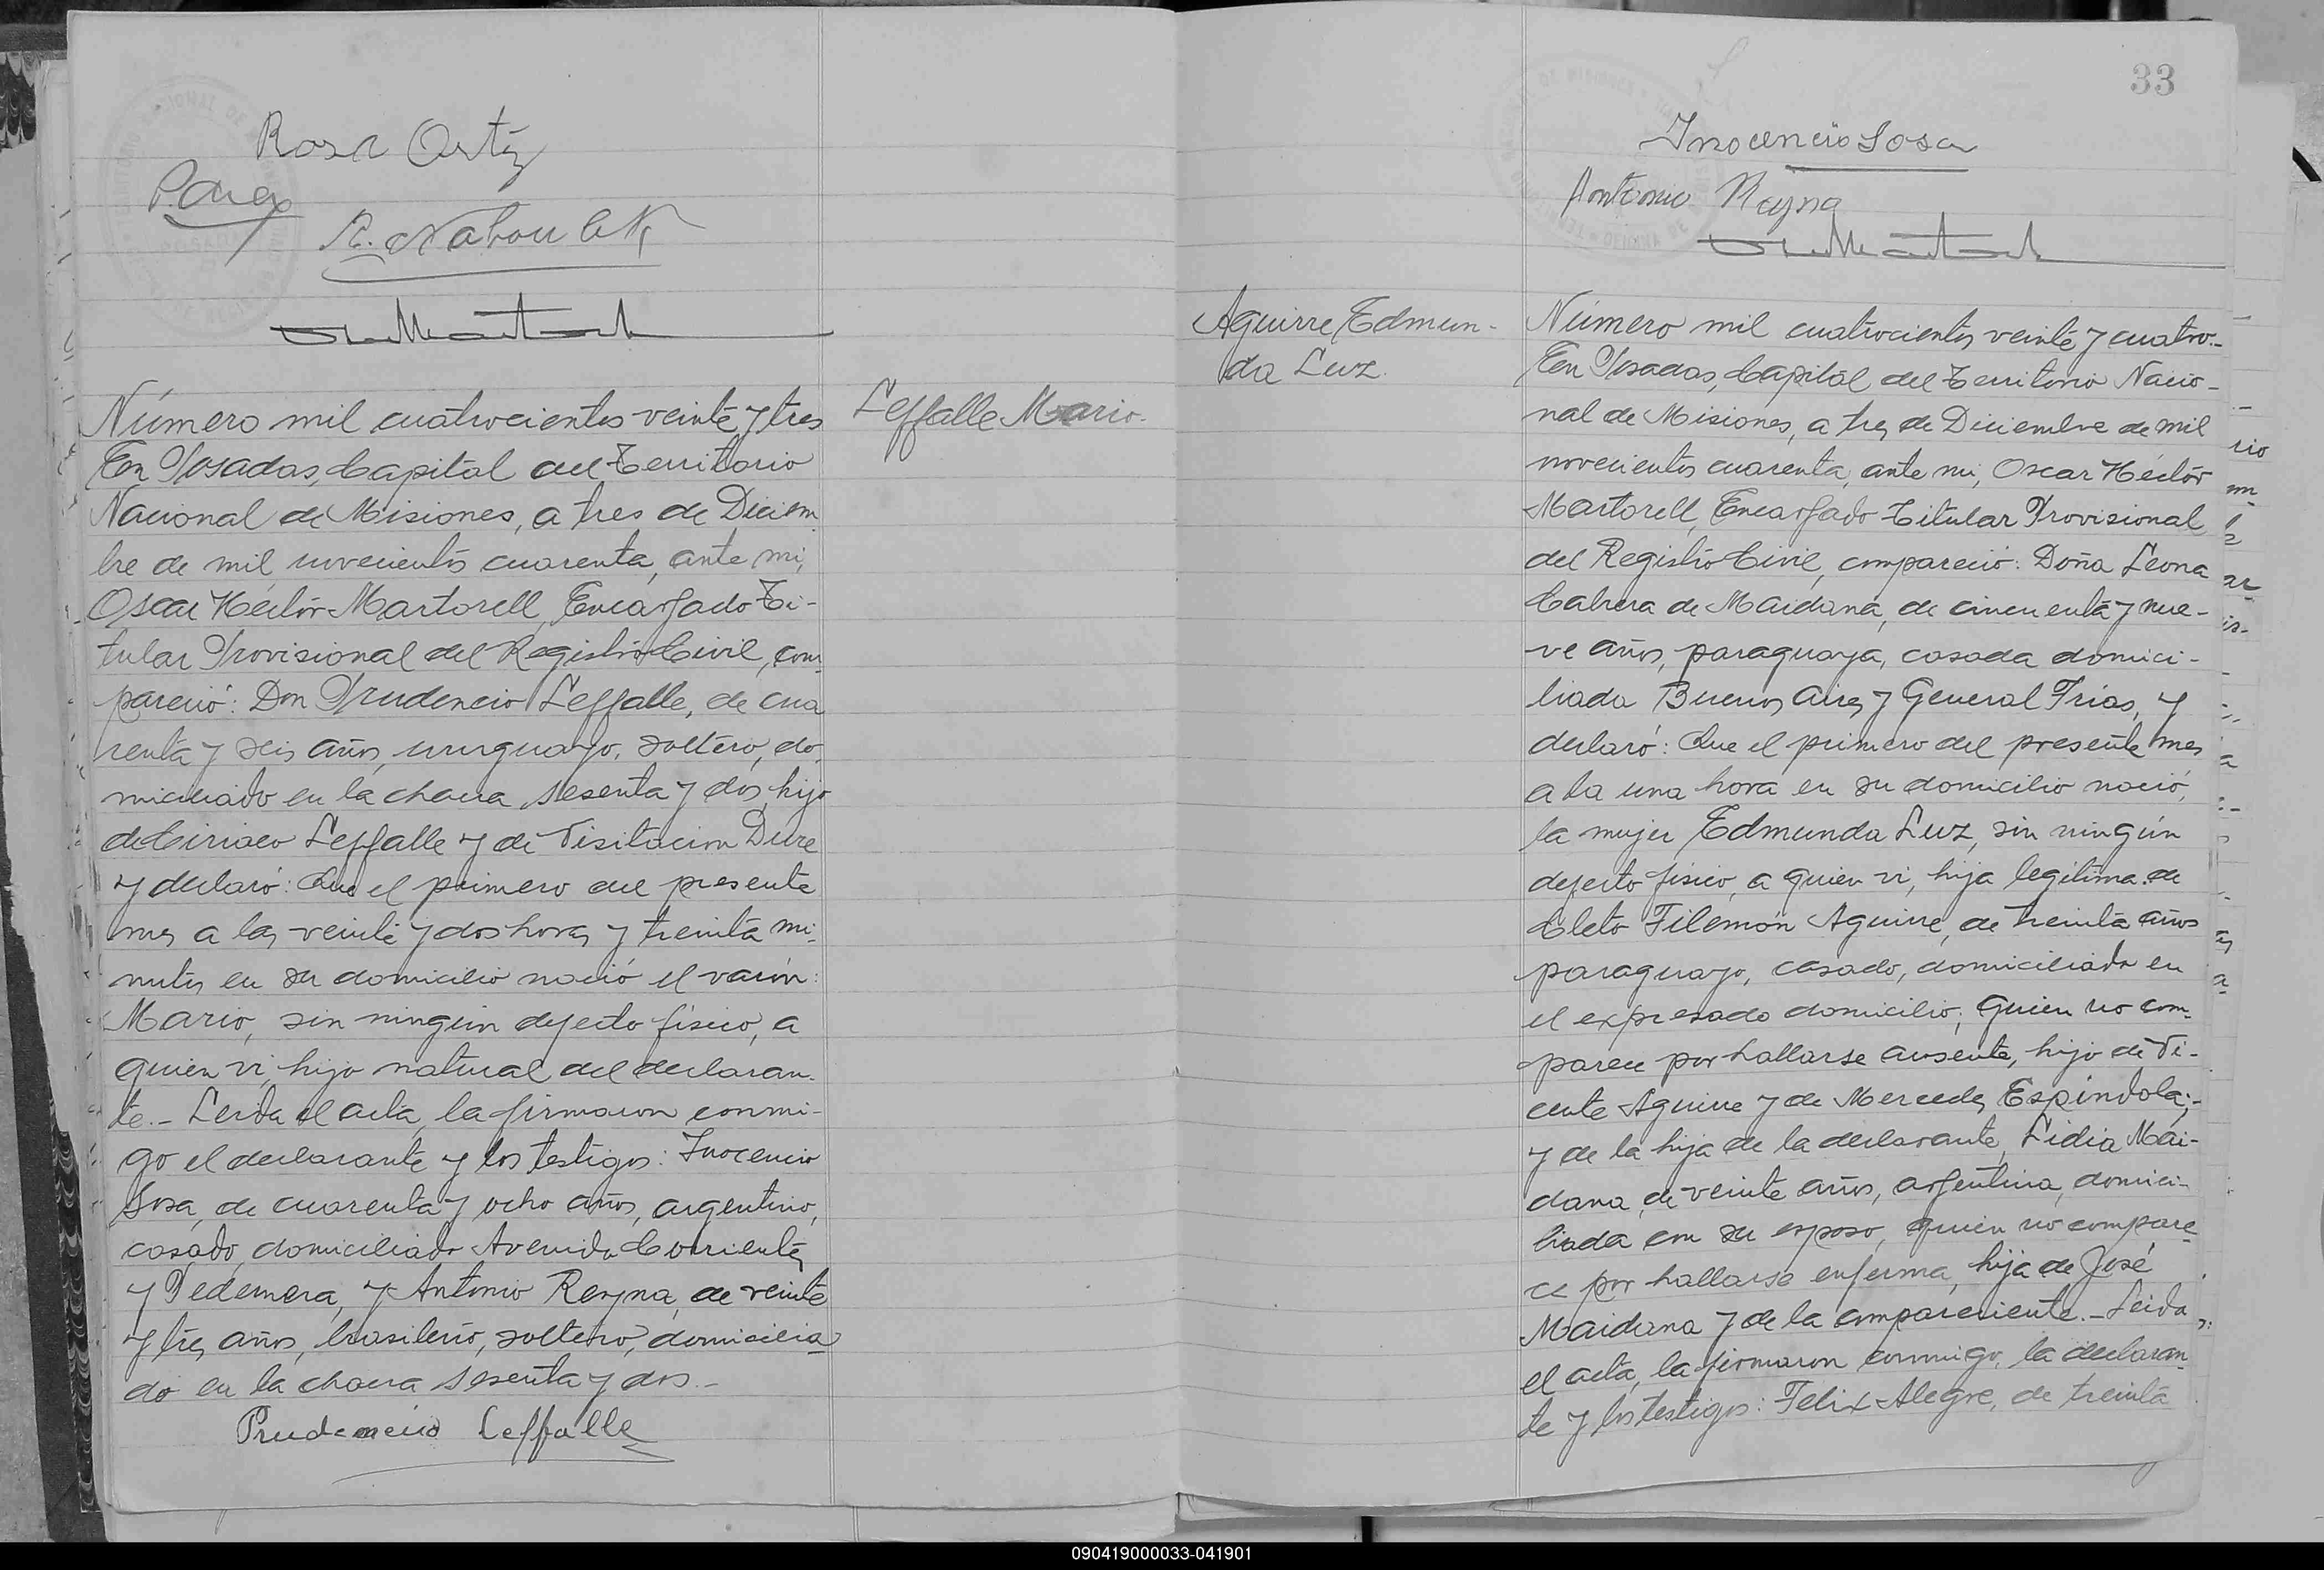 Rosa Ortiz
Número mil cuatrocientos veinte y tres
Leffalle Mario.
En Posadas, Capital del Territorio
Nacional de Misiones, a tres de Diciem
bre de mil novecientos cuarenta, ante mi,
Oscar Héctor Martorell, Encargado Ti-
tular Provisional del Registro Civil, com
pareció: Don Prudencio Leffalle, de cua
renta y seis años, uruguayo, soltero, do
miciliado en la chacra sesenta y dos, hijo
de Ciriaco Leffalle y de Visitacion Dure
y declaró: Que el primero del presente
mes a las veinte y dos horas y treinta mi-
nutos en su domicilio nació el varón:
Mario, sin ningun defecto físico, a
quien vi, hijo natural del declaran-
te.- Leida el acta, la firmaron conmi-
go el declarante y los testigos: Inocencio
Sosa, de cuarenta y ocho años, argentino,
casado, domiciliado Avenida Corrientes
y Pedernera, y Antonio Reyna, de veinte
y tres años, brasileño, soltero, domicilia
do en la chacra sesenta y dos.-
Prudencio Leffalle
33
Inocencio Sosa
Antonio Reyna
Aguirre Edmun-
da Luz.
Número mil cuatrocientos veinte y cuatro.-
En Posadas, Capital del Territorio Nacio-
nal de Misiones, a tres de Diciembre de mil
novecientos cuarenta, ante mi, Oscar Héctor
Martorell, Encargado Titular Provisional
del Registro Civil, compareció: Doña Leona
Cabrera de Maidana, de cincuenta y nue-
ve años, paraguaya, casada domici-
liada Buenos Aires y General Frias, y
declaró: Que el primero del presente mes
a la una hora en su domicilio nació,
la mujer Edmunda Luz, sin ningún
defecto físico, a quien vi, hija legítima de
Cleto Filemón Aguirre, de treinta años
paraguayo, casado, domiciliado en
el expresado domicilio; quien no com-
parece por hallarse ausente, hijo de Vi-
cente Aguirre y de Mercedes Espíndola;-
y de la hija de la declarante, Lidia Mai-
dana, de veinte años, argentina, domici-
liada con su esposo, quien no compare
ce por hallarse enferma, hija de José
Maidana y de la compareciente.- Leida
el acta, la firmaron conmigo, la declaran
te y los testigos: Felix Alegre, de treinta
090419000033-041901